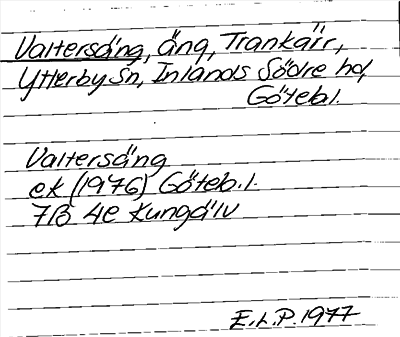 Valtersäng, äng, Trankärr,
Ytterby Sn, Inlands Södre hd,
Göteb.l.
Valtersäng
ek (1976) Göteb.l.
7B 4e Kungälv
E.L.P. 1977